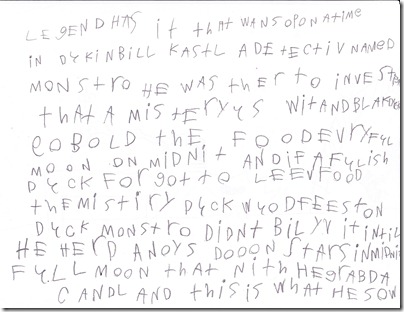 LEGEND HAS it tHAt WANS OPON A tIME
IN DYKINBILL KASTL A DEtECtIV NAMED
MONStRO HE WAS tHER tO INVESt
tHAt A MIStERYYS WIt AND BLAK DYCK
GOBOLD tHE FOOD EVRY FYL
MOON ON MIDNIt AND IF A FYLISH
DYCK FORGOt tO LEEV FOOD
tHE MIStIRY DYCK WYOD FEESt ON
DYCK MONStRO DIDNt BILYV It INtIL
HE HERD A NOYS DOOON StARS IN MIDNIt
FYLL MOON tHAt NItH HE GRAB DA
CANDL AND tHIS IS WHAt HE SOW